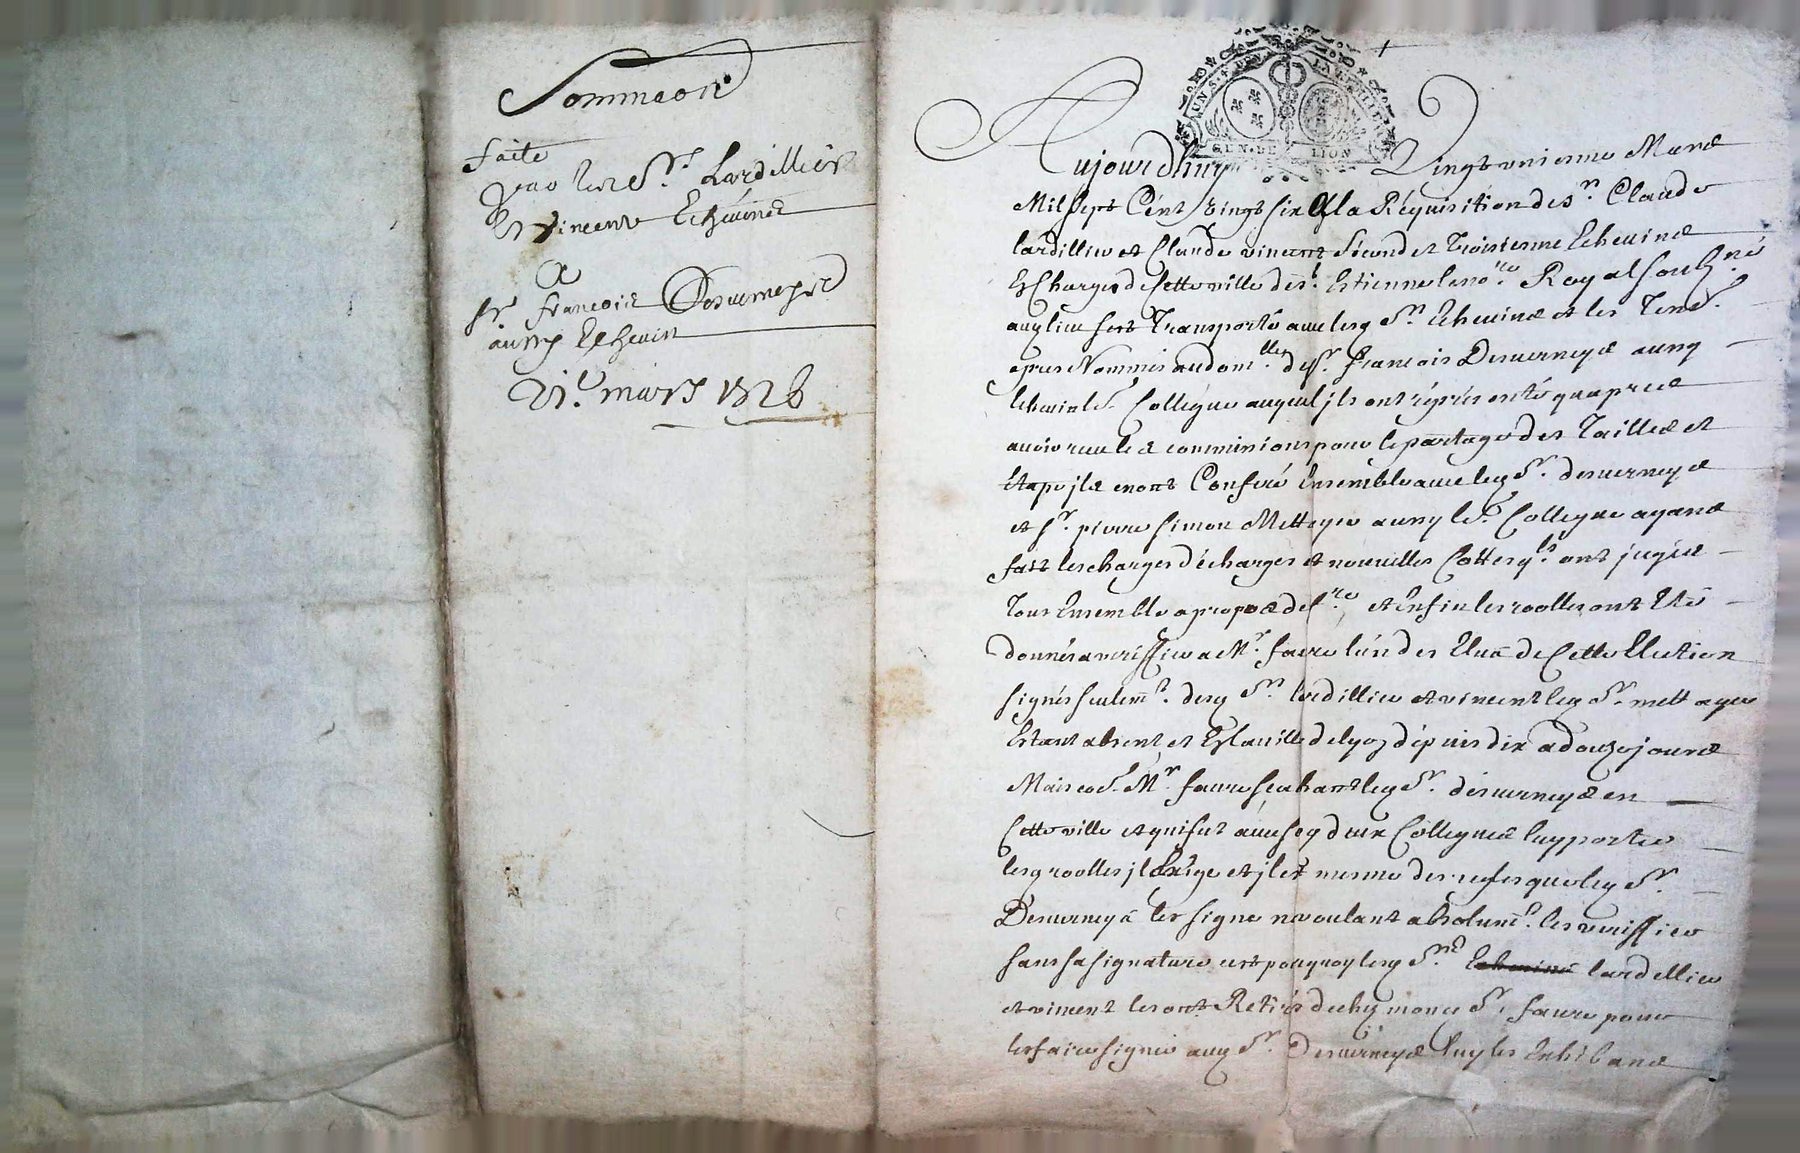 Sommaon
faite
par les Srs. Lardillier
et vincent Echevins
a
Sr francois Desverneys
aussy Echevin
21e. mars 1726
GEN. DE LION
Aujourdhuy Vingt unieme Mars
Mil sept Cent vingt six a la Réquisition de sr. Claude
lardillier et Claude vincent sécond et troisieme Echevins
En Charges de Cette ville de st. Estienne le nore. Royal soubzné
avec lesq Srs. Echevins et les
apres Nommés au domlle. de sr. francois Desverneys aussy
Echevin le. Collégue auquel jls ont réprésenté quaprés
avoir receu les commissions pour le partage des Tailles et
Etape jls en ont Conferé Ensemble avec leq Sr. desverneys
et sr. pierre simon Mettayer aussy le. Collegue ayant
fait les charges décharges et nouvelles Cottes qls. ont jugés
tous Ensemble a propos de fre. et Enfin les roolles ont Eté
donnés a veriffier a Mr. faure lun des Elus de Cette Election
signés seulemt. desq Srs. lardillier et vincent leq Sr. mettayer
Estant absent et En la ville de lyon dépuis dix a douze jours
Mais led. Mr. faure sachant leq Sr. desverneys en
Cette ville et qui fut avec sesq deux Collegues luy porter
lesq roolles jl Exige et jl est mesme de refus que leq Sr.
Desverneys les signe ne voulant absolumt. les veriffier
sans sa signature cest pourquoy lesq Srs. Echevins lardillier
et vincent les ont Retirés de chez mond Sr. faure pour
les faire signer auq Sr. Desverneys luy les Exhibant